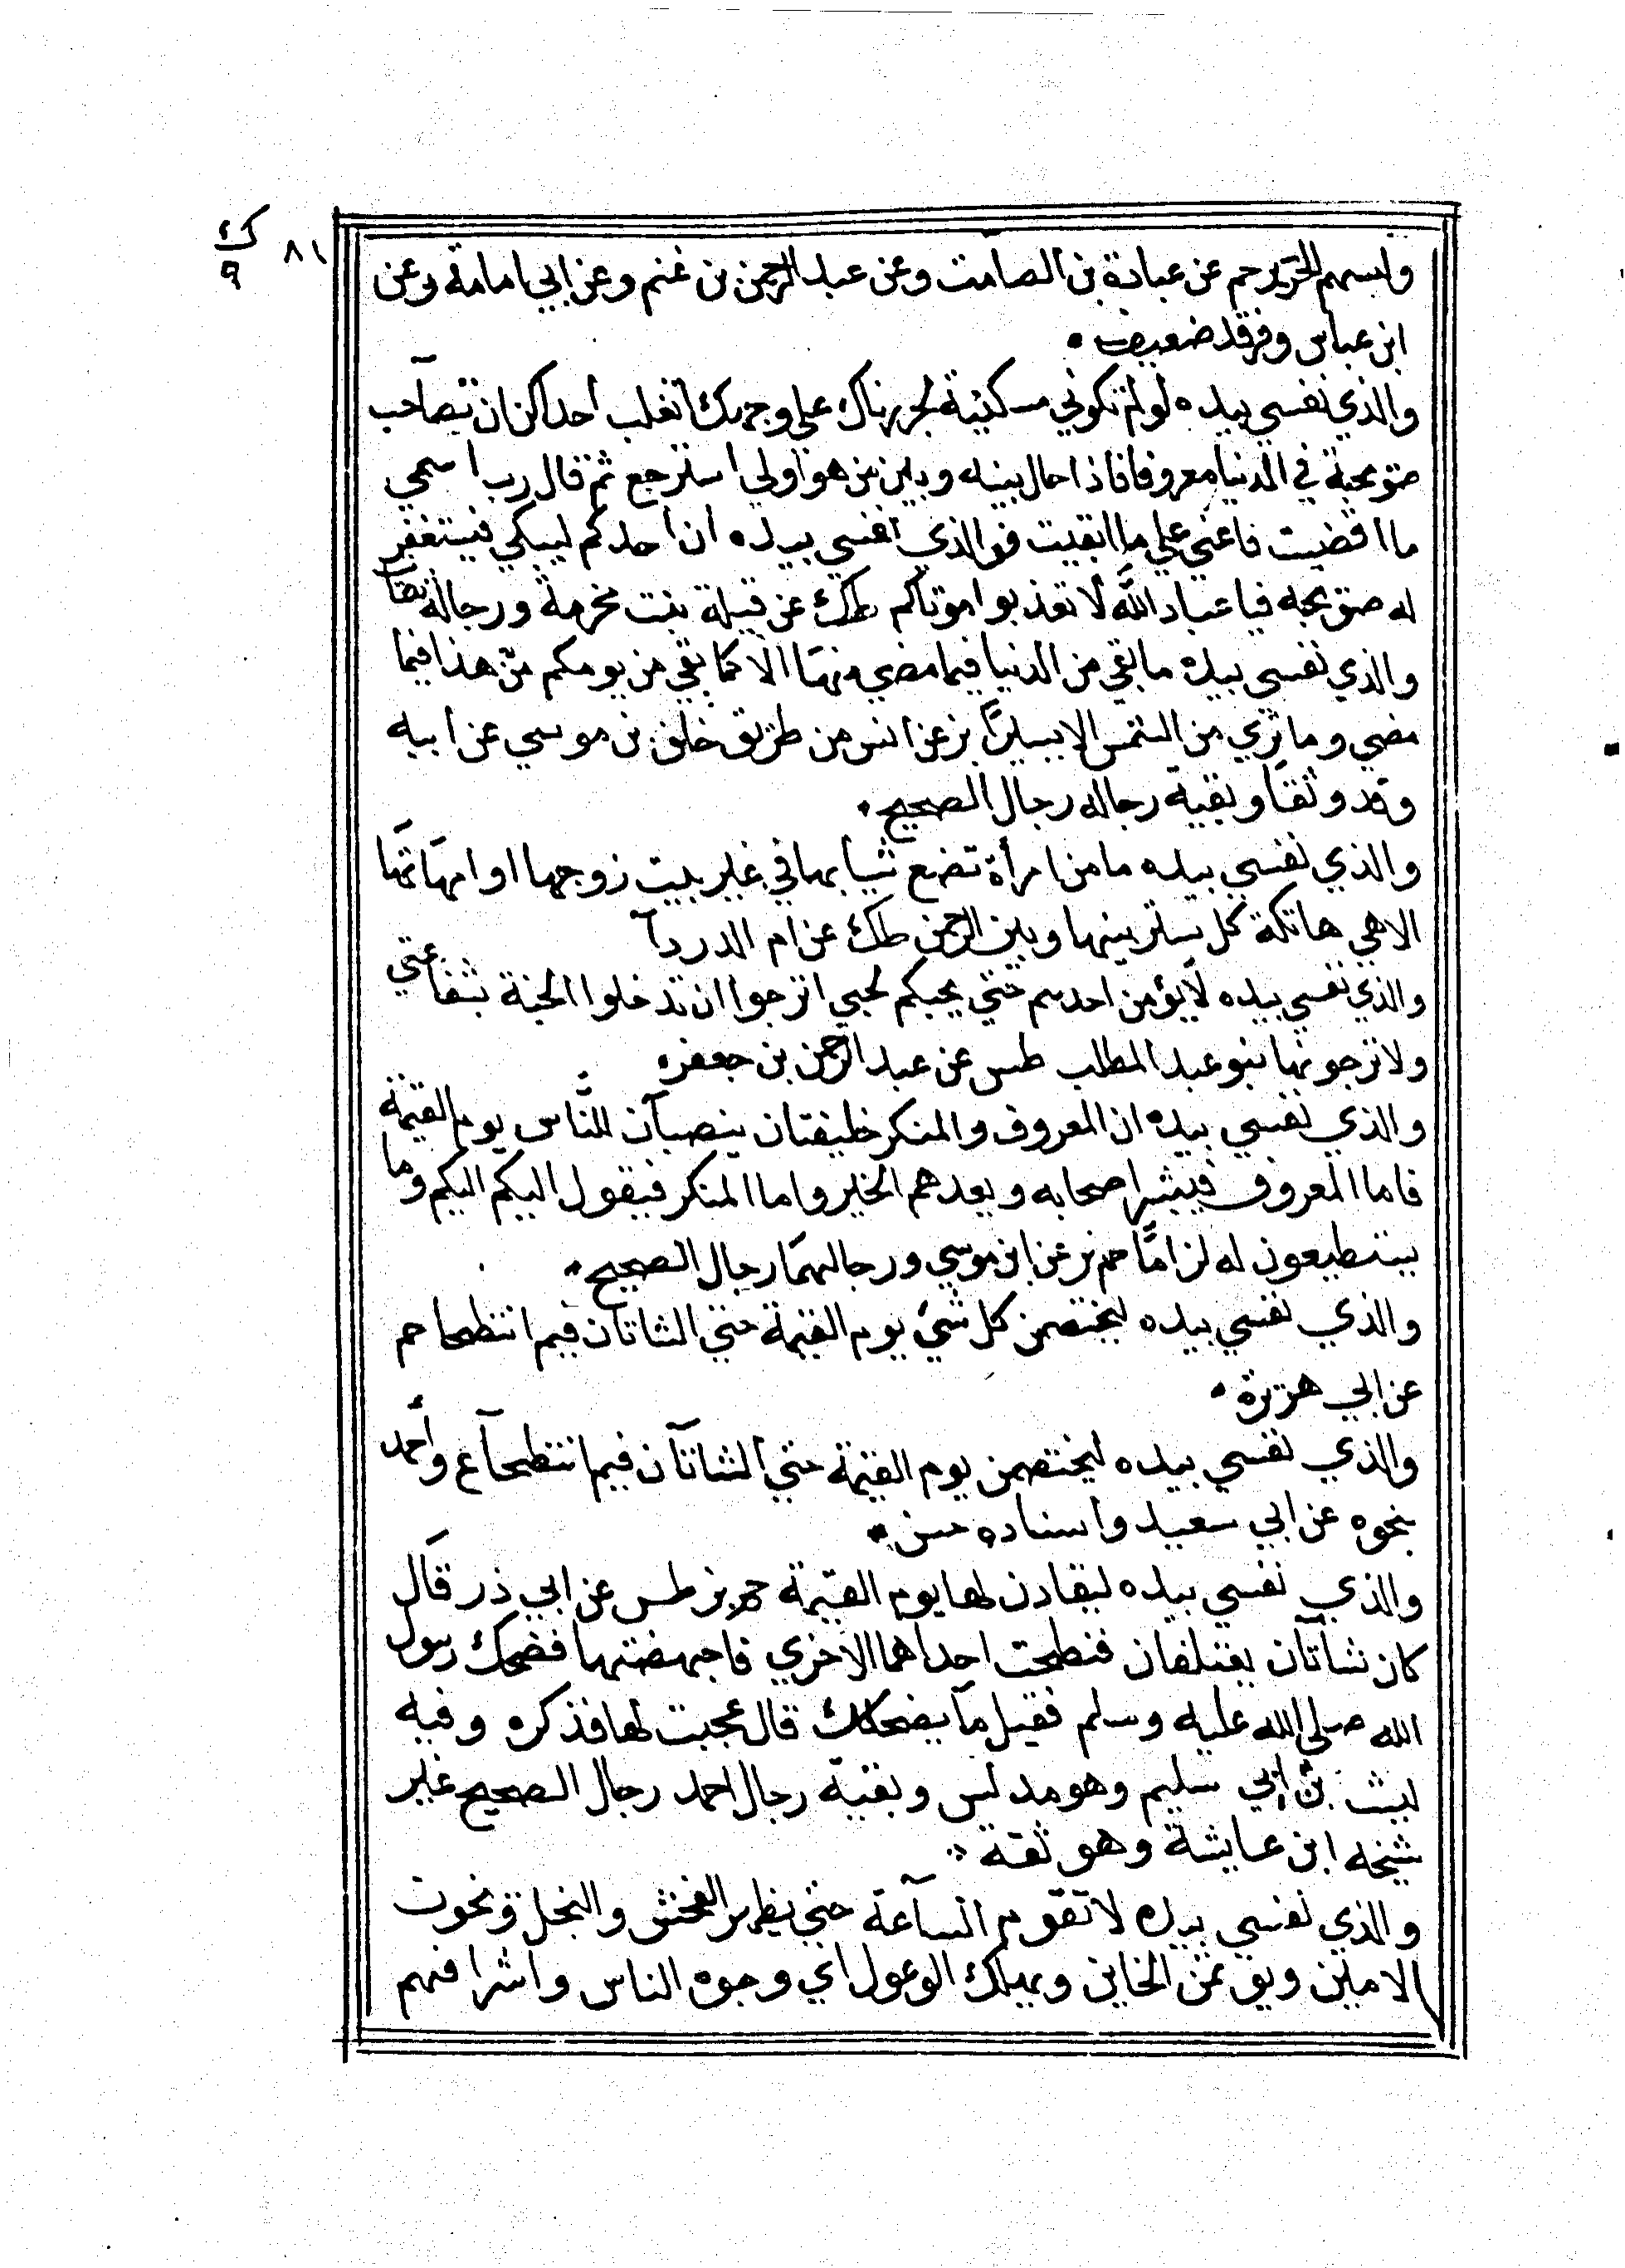 ٨١ ك
٩
ولبسهم الحرير حم عن عبادة بن الصامت وعن عبد الرحمن بن غنم وعن ابي امامة وعن
ابن عباس وفرقد ضعيف
والذي نفسي بيده لو لم تكوني مسكينة لجررناك على وجهك اتغلب احداكن ان تصاحب
صويحبة في الدنيا معروفا فاذا حال بينه وبين من هو اولى استرجع ثم قال رب
ما اقضيت فاعني على ما ابقيت فوالذي نفسي بيده ان احدكم ليبكي فيستغفر
له صويحبه فيا عباد الله لا تعذبوا موتاكم طك عن قيلة بنت مخرمة ورجاله ثقات
والذي نفسي بيده ما بقي من الدنيا فيما مضي منها الا كما بقي من يومكم من هذا فيما
مضي وما نري من الشمس الا يسيرا بز عن انس من طريق خلف بن موسي عن ابيه
وقد وثقا وبقية رجاله رجال الصحيح
والذي نفسي بيده ما من امرأة تضع ثيابها في غير بيت زوجها او امهاتها
الا هي هاتكة كل ستر بينها وبين الرحمن طك عن ام الدردآ
والذي نفسي بيده لا يؤمن احدهم حتي يحبكم لحبي اترجوا ان تدخلوا الجنة بشفاعتي
ولا ترجونها بنو عبد المطلب طس عن عبد الرحمن بن جعفر
والذي نفسي بيده ان المعروف والمنكر خليقتان ينصبان للناس يوم القيمة
فاما المعروف فيبشر اصحابه ويعدهم الخير واما المنكر فيقول اليكم اليكم وما
يستطيعون له لزاما حم بز عن ابن موسي ورجالهما رجال الصحيح
والذي نفسي بيده ليختصمن كل شيء يوم القيمة حتي الشاتان فيم انتطحا حم
عن ابي هريرة
والذي نفسي بيده ليختصمن يوم القيمة حتي الشاتان فيم انتطحا ع واحمد
بنحوه عن ابي سعيد واسناده حسن
والذي نفسي بيده ليقادن لها يوم القيمة حم بز طس عن ابي ذر قال
كان شاتان يعتلفان فنطحت احداهما الاخري فاجهضتها فضحك رسول
الله صلي الله عليه وسلم فقيل ما يضحكك قال عجبت لها فذكره وفيه
ليث بن ابي سليم وهو مدلس وبقية رجال احمد رجال الصحيح غير
شيخه ابن عايشة وهو ثقة
والذي نفسي بيده لا تقوم الساعة حتي يظهر الفحش والبخل ويخون
الامين ويؤتمن الخاين ويهلك الوعول اي وجوه الناس واشرافهم